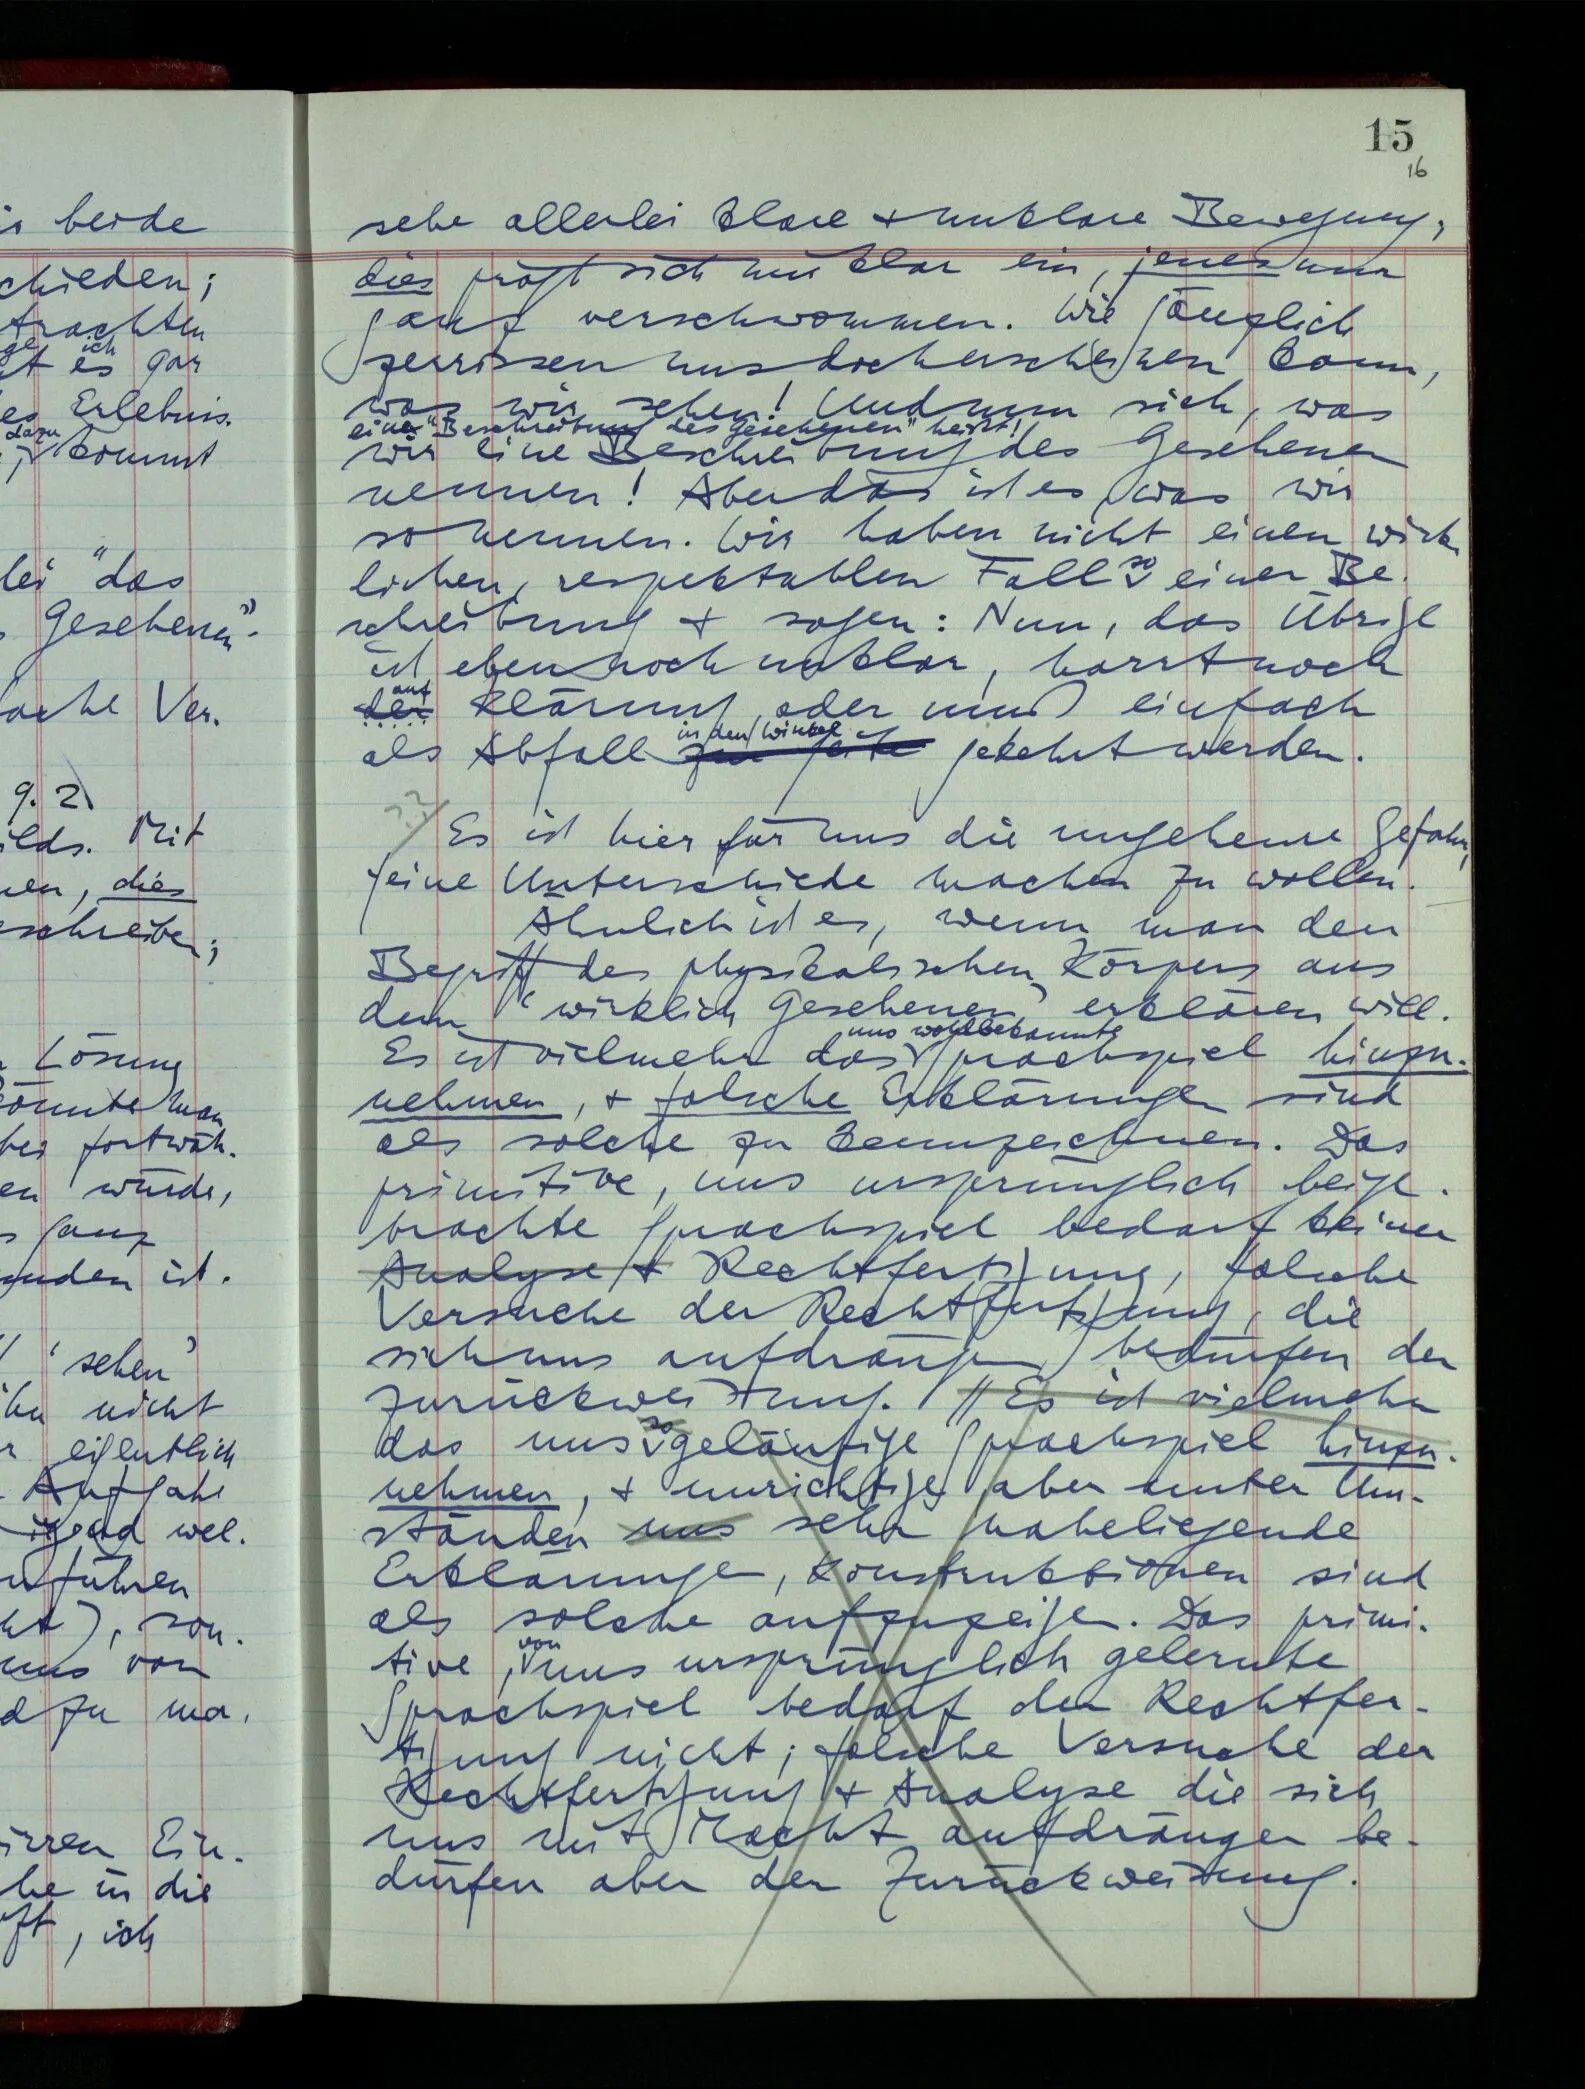 is beide
chieden;
trachten
ge ich
t es gar
es Erlebnis.
dazu
kommt
lei "das
Gesehenen"
ache Ver.
9. 2.
ilds. Mit
nen, dies
eschreiben;
Lösung
könnte man
bei fortwäh.
en würde,
s ganz
unden ist.
'sehen'
ihn nicht
r eigentlich
Aufgabe
irgend wel.
nführen
ht), son.
uns von
d zu ma.
irren Ein.
he in die
ft, ich
15
16
sehe allerlei klare + unklare Bewegung,
dies prägt sich mir klar ein, jenes nur
ganz verschwommen. Wie gänzlich
zerrissen uns doch erscheinen kann,
was wir sehen! Und nun sieh, was
eine "Beschreibung des Gesehenen" heißt!
wir eine Beschreibung des Gesehenen
nennen! Aber das ist es, was wir
so nennen. Wir haben nicht einen wirk
so
lichen, respektablen Fall einer Be.
schreibung + sagen: Nun, das Übrige
ist eben noch unklar, harrt noch
auf
der Klärung, oder muß einfach
in den Winkel
als Abfall zur Seite gekehrt werden.
??
Es ist hier für uns die ungeheure Gefahr,
feine Unterschiede machen zu wollen.
Ähnlich ist es, wenn man den
Begriff des physikalischen Körpers aus
dem 'wirklich Gesehenen' erklären will.
uns wohlbekannte
Es ist vielmehr das Sprachspiel hinzu.
nehmen, + falsche Erklärungen sind
als solche zu kennzeichnen. Das
primitive, uns ursprünglich beige.
brachte Sprachspiel bedarf keiner
Analyse + Rechtfertigung, falsche
Versuche der Rechtfertigung, die
sich uns aufdrängen, bedürfen der
Zurückweisung. // Es ist vielmehr
so
das uns geläufige Sprachspiel hinzu.
nehmen, + unrichtige, aber unter Um-
ständen uns sehr naheliegende
Erklärungen, Konstruktionen sind
als solche aufzuzeigen. Das primi.
von
tive, uns ursprünglich gelernte
Sprachspiel bedarf der Rechtfer-
tigung nicht; falsche Versuche der
Rechtfertigung + Analyse die sich
uns mit Macht aufdrängen be-
dürfen aber der Zurückweisung.